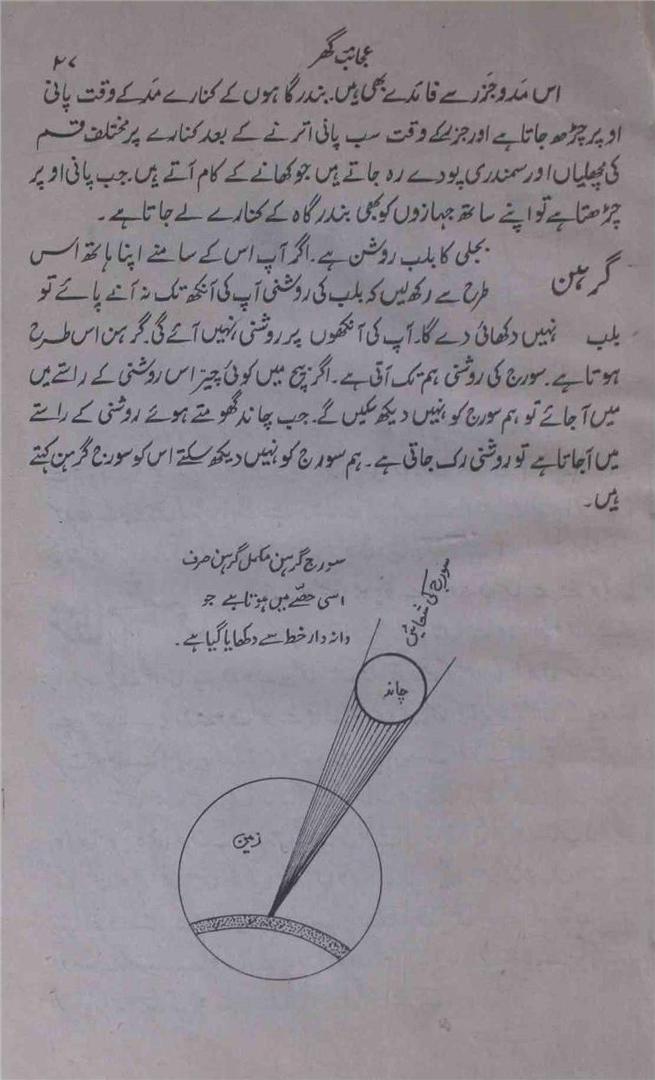 عجائب گھر
۲۷
اس مَد و جَزر سے فائدے بھی ہیں۔ بندرگاہوں کے کنارے مَد کے وقت پانی
اوپر چڑھ جاتا ہے اور جزر کے وقت سب پانی اترنے کے بعد کنارے پر مختلف قسم
کی مچھلیاں اور سمندری پودے رہ جاتے ہیں جو کھانے کے کام آتے ہیں۔ جب پانی اوپر
چڑھتا ہے تو اپنے ساتھ جہازوں کو بھی بندرگاہ کے کنارے لے جاتا ہے۔
گرہن
بجلی کا بلب روشن ہے۔ اگر آپ اس کے سامنے اپنا ہاتھ اس
طرح سے رکھ لیں کہ بلب کی روشنی آپ کی آنکھ تک نہ آنے پائے تو
بلب نہیں دکھائی دے گا۔ آپ کی آنکھوں پر روشنی نہیں آئے گی۔ گرہن اس طرح
ہوتا ہے۔ سورج کی روشنی ہم تک آتی ہے۔ اگر بیچ میں کوئی چیز اس روشنی کے راستے میں
میں آجائے تو ہم سورج کو نہیں دیکھ سکیں گے۔ جب چاند گھومتے ہوئے روشنی کے راستے
میں آجاتا ہے تو روشنی رک جاتی ہے۔ ہم سورج کو نہیں دیکھ سکتے اس کو سورج گرہن کہتے
ہیں۔
سورج گرہن مکمل گرہن صرف
اسی حصّے میں ہوتا ہے جو
دانہ دار خط سے دکھایا گیا ہے۔
سورج کی شعاعیں
چاند
زمین